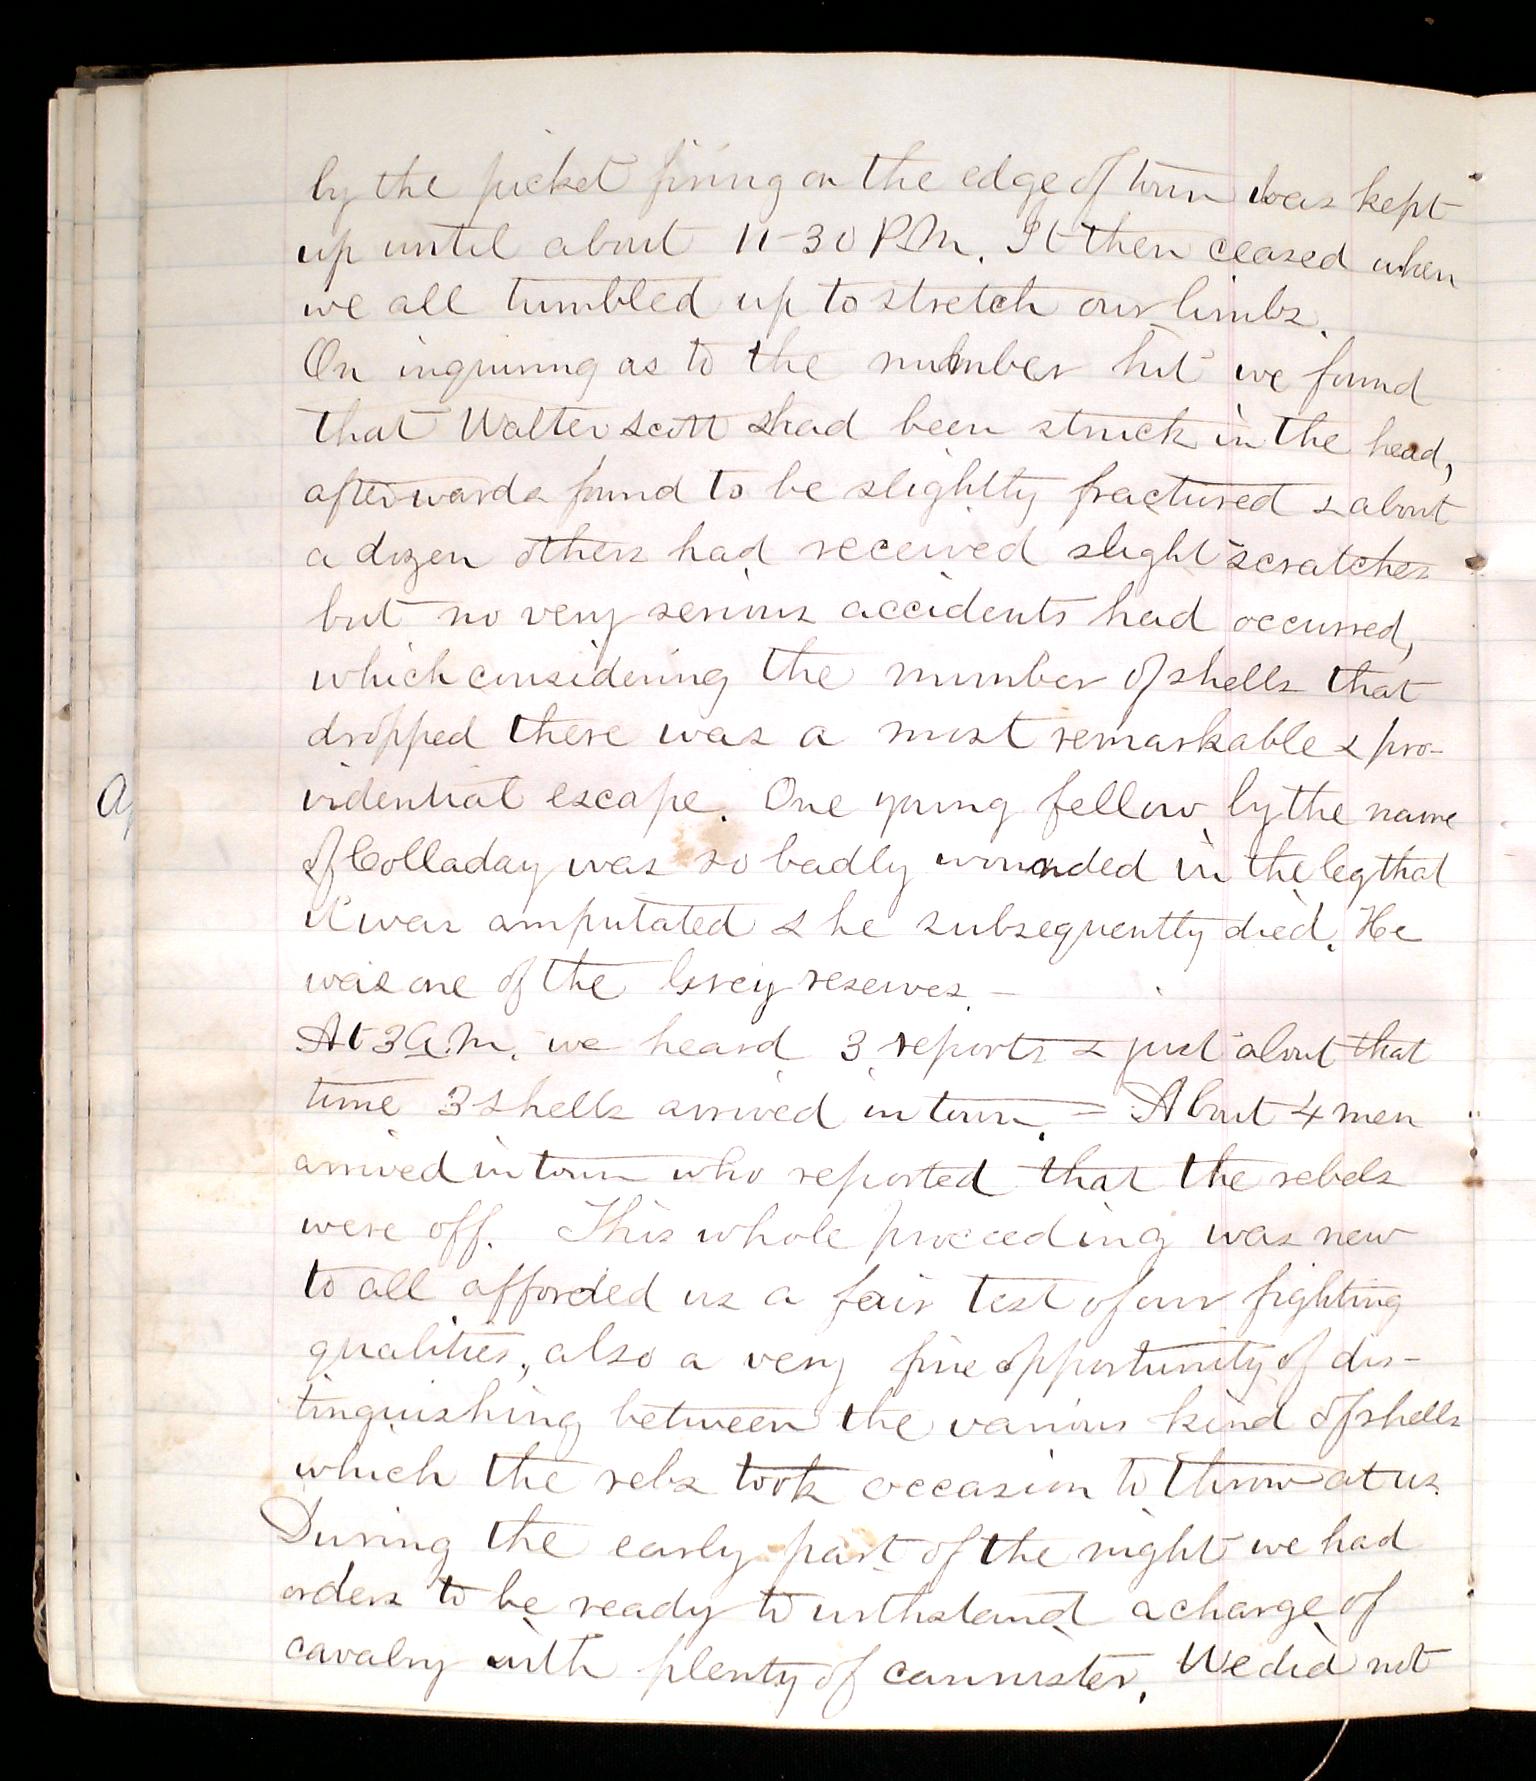 by the picket firing on the edge of town was kept
up until about 11-30 P.M. It then ceased when
we all tumbled up to stretch our limbs.
On inquiring as to the number hit we found
that Walter Scott had been struck in the head,
afterwards found to be slightly fractured & about
a dozen others had received slight scratches
but no very serious accidents had occurred,
which considering the number of shells that
dropped there was a most remarkable & pro-
vidential escape. One young fellow by the name
of Colladay was so badly wounded in the leg that
it was amputated & he subsequently died. He
was one of the Grey reserves. -
At 3 A.M. we heard 3 reports & just about that
time 3 shells arrived in town. = About 4 men
arrived in town who reported that the rebels
were off. This whole proceeding was new
to all afforded us a fair test of our fighting
qualities, also a very fine opportunity of dis-
tinguishing between the various kind of shells
which the rebs took occasion to throw at us.
During the early part of the night we had
orders to be ready to withstand a charge of
cavalry with plenty of cannister. We did not